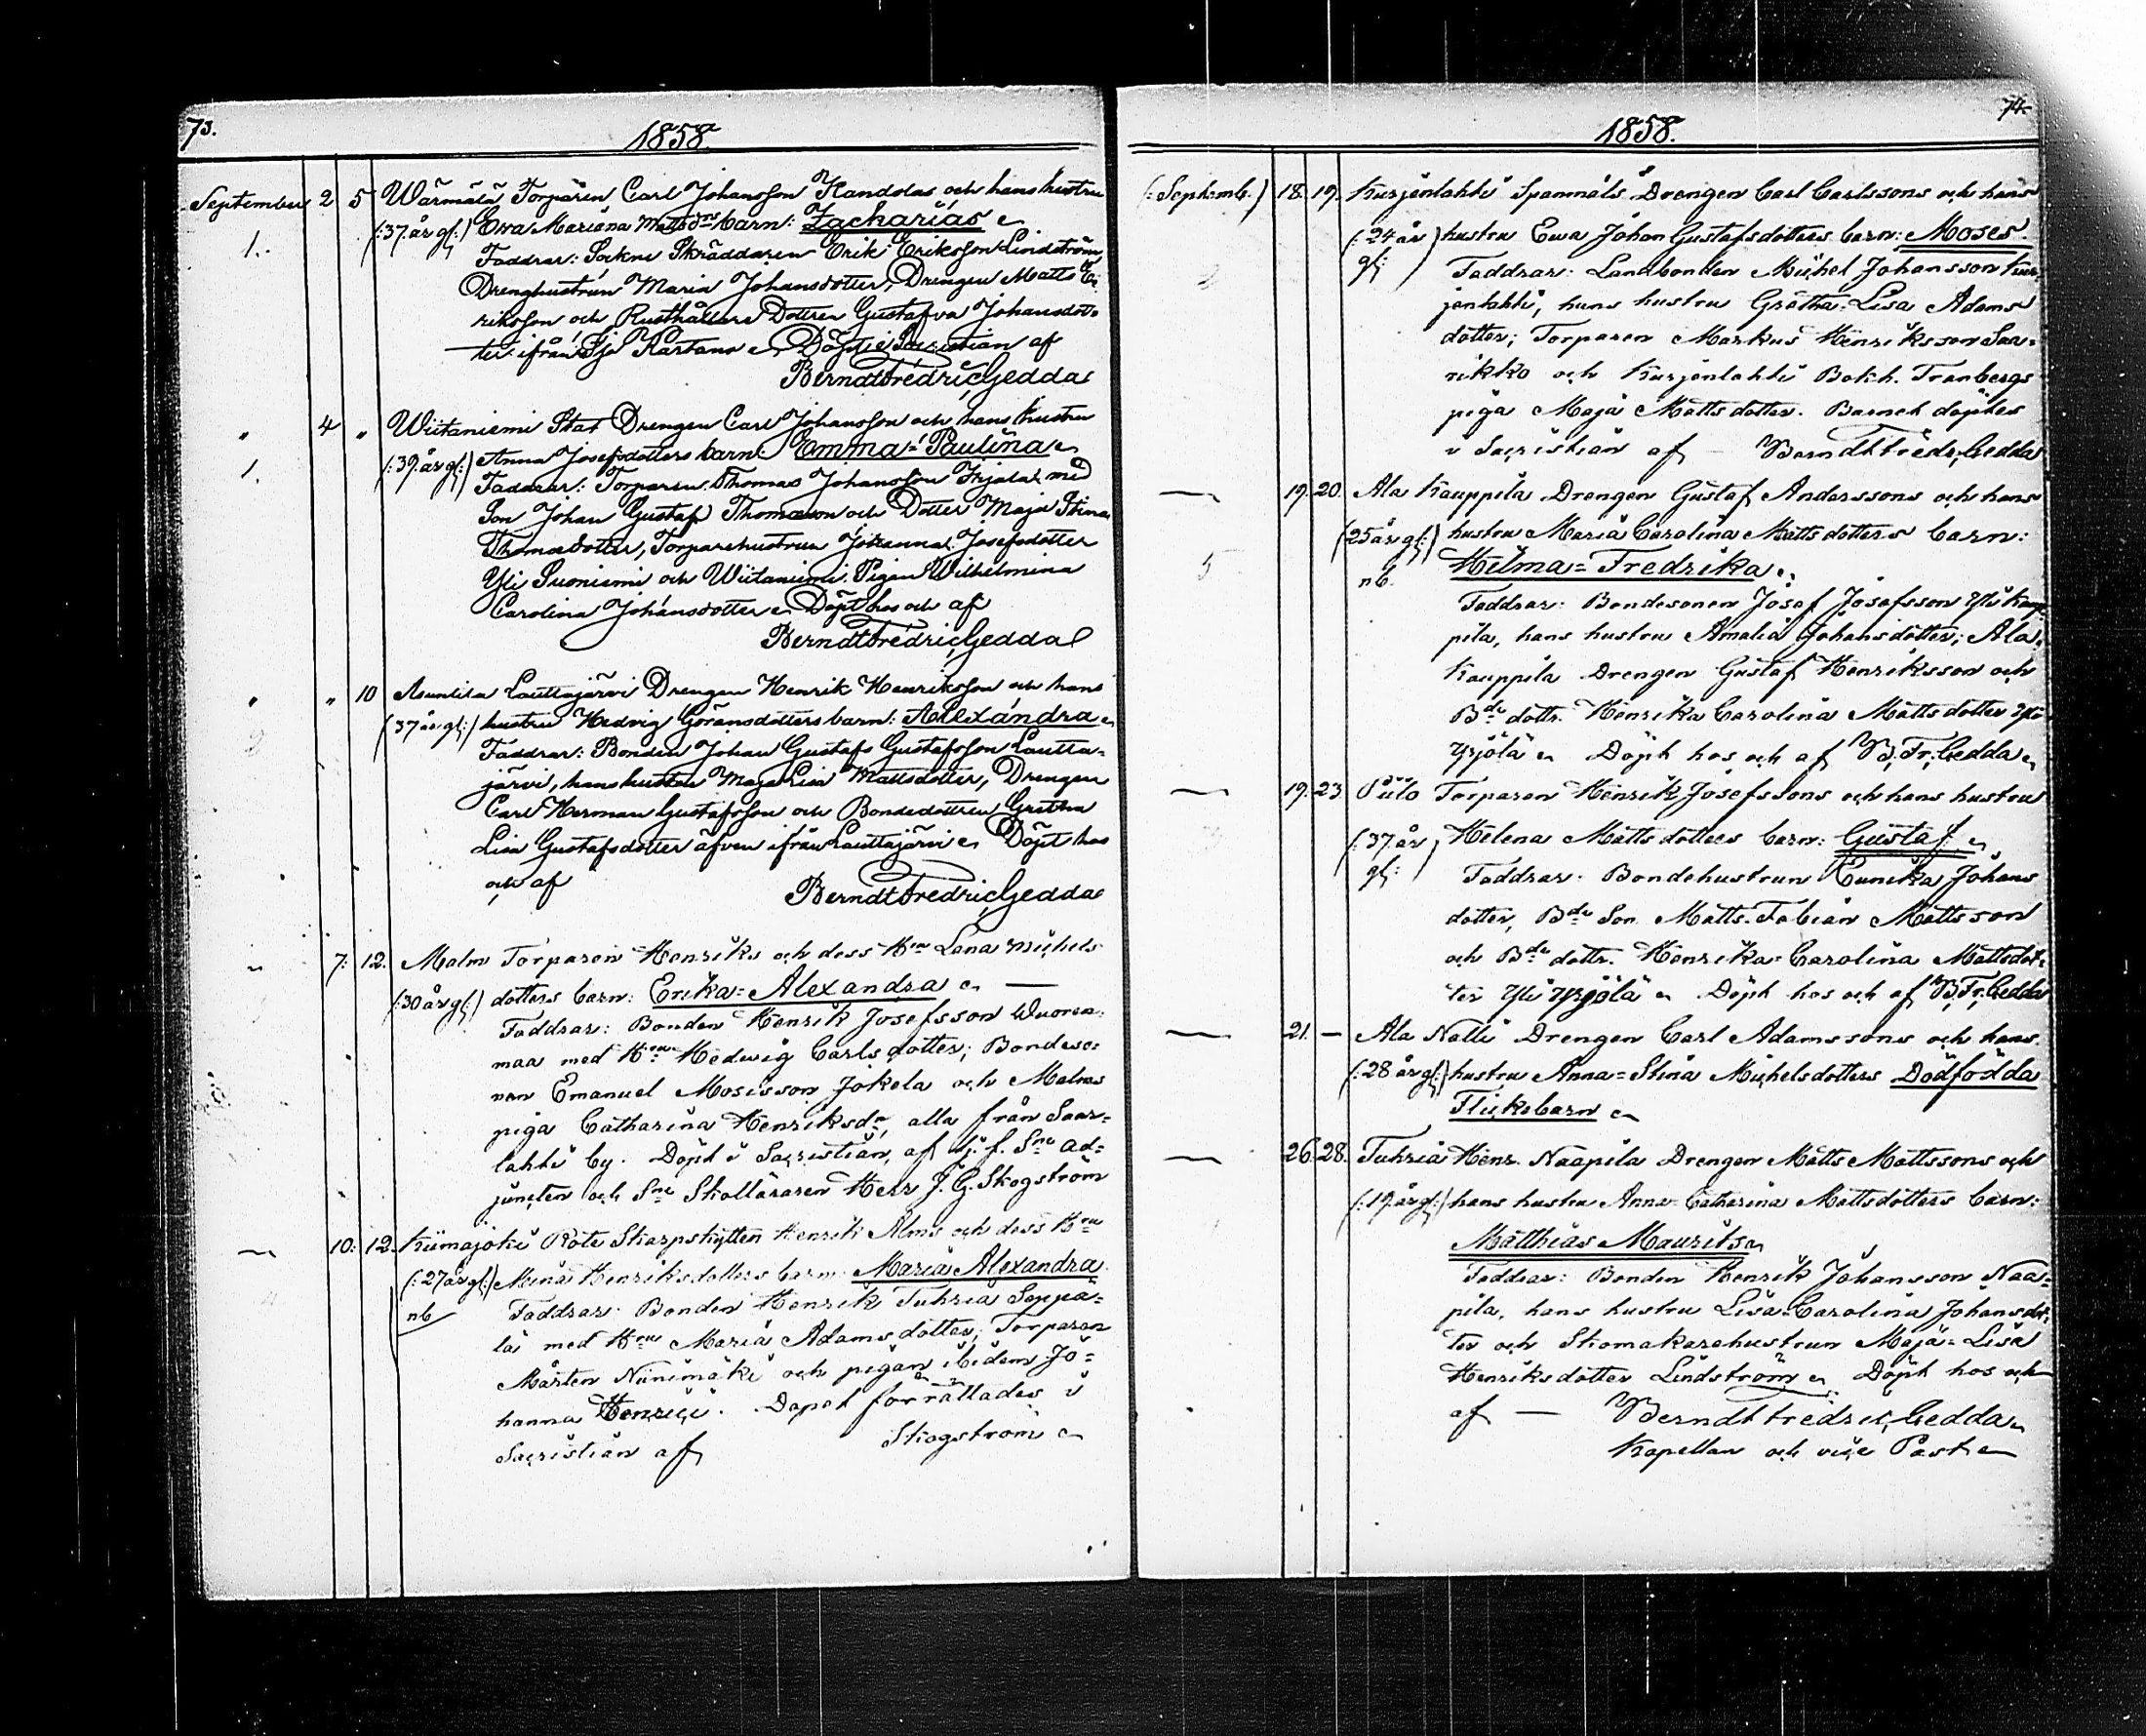 73.
1858.
September 2 5 Wärmälä Torparen Carl Johansson Handolas och hans hustru
1. (:37 år gl:) Ewa Mariana Mattsdrs barn: Zacharias
Faddrar: Sockne Skräddaren Erik Eriksson Lindström,
Drenghustrun Maria Johansdotter, Drengen Matts E-
riksson och Rusthållare Dottren Gustafva Johansdot-
ter ifrån Kartano Döpt i Sacristian af
Berndt Fredric Gedda
" 4 " Wiitaniemi Stat Drengen Carl Johansson och hans hustru
1. (:39 år gl:) Anna Josefsdotters barn: Emma-Paulina
Faddrar: Torparen Thomas Johansson med
Son Johan Gustaf Thomasson och Dotter Maja Stina
Thomasdotter, Torparehustrun Johanna Josefsdotter
Yli Suoniemi och Wiitaniemi Pigan Wilhelmina
Carolina Johansdotter Döpt hos och af
Berndt Fredric Gedda
" " 10 Asuntila Lauttajärvi Drengen Henrik Henriksson och hans
2 (37 år gl:) hustru Hedvig Göransdotters barn: Alexandra
Faddrar: Bonden Johan Gustafs Gustafsson Lautta-
järvi, hans hustru Maja Lisa Mattsdotter, Drengen
Carl Herman Gustafsson och Bondedottren Gretha
Lisa Gustafsdotter äfven ifrån Lauttajärvi Döpt hos
och af Berndt Fredric Gedda
7. 12. Malm Torparen Henriks och dess Hru Lena Michels-
(:30 år gl:) dotters barn: Erika=Alexandra
Faddrar: Bonden Henrik Josefsson Wuoren-
maa med Hru Hedwig Carlsdotter; Bondeso-
nen Emanuel Mosisson Jokela och Malms
piga Catharina Henriksdr, alla från Saar-
lahti by. Döpt i Sacristian, af tj. f. Sne Ad-
juncten och Sne Skolläraren Herr J. G. Skogström
10. 12. Kiimajoki Rote Skarpskytten Henrik Alms och dess Hru
(:27 år gl:) Mina Henriksdotters barn: Maria Alexandra
nb Faddrar: Bonden Henrik Tuhria Seppä-
lä med Hru Maria Adamsdotter; Torparen
Mårten Niinimäki och pigan ibidem Jo-
hanna Henrici. Dopet förrättades i
Sacristian af Skogström
74.
1858.
(:Septemb.) 18. 19. Kurjenlahti Spanmåls Drengen Carl Carlssons och hans
(:24 år gl:) hustru Ewa Johan Gustafsdotters barn: Moses.
Faddrar: Landbonden Michel Johansson Kur-
jenlahti, hans hustru Gretha Lisa Adams
dotter; Torparen Markus Henriksson Saa-
rikko och Kurjenlahti Bokh. Tranbergs
piga Maja Mattsdotter. Barnet döptes
i Sacristian af Berndt Fredr. Gedda
19. 20. Ala Kauppila Drengen Gustaf Anderssons och hans
5 (25 år gl:) hustru Maria Carolina Mattsdotters barn:
nb. Hilma=Fredrika.
Faddrar: Bondesonen Josef Josefsson Yli Kaup-
pila, hans hustru Amalia Johansdotter; Ala
Kauppila Drengen Gustaf Henriksson och
Bde dottr. Henrika Carolina Mattsdotter Yli
Yrjölä Döpt hos och af B. Fr. Gedda
19. 23. Piilo Torparen Henrik Josefssons och hans hustru
(:37 år gl: Helena Mattsdotters barn: Gustaf
Faddrar: Bondehustrun Eunika Johans
dotter, Bde Son Matts Fabian Mattsson
och Bde dottr. Henrika Carolina Mattsdot-
ter Yli Yrjölä Döpt hos och af B. Fr. Gedda
21. — Ala Nalli Drengen Carl Adamssons och hans
(:28 år gl:) hustru Anna=Stina Michelsdotters Dödfödda
Flickebarn
26. 28. Tuhria Henr. Naapila Drengen Matts Mattssons och
(:19 år gl:) hans hustru Anna Catharina Mattsdotters barn:
Matthias Maurits
Faddrar: Bonden Henrik Johansson Naa-
pila, hans hustru Lisa Carolina Johansdot-
ter och Skomakarehustrun Maja=Lisa
Henriksdotter Lindström Döpt hos och
af — Berndt Fredric Gedda
Kapellan och vice Past